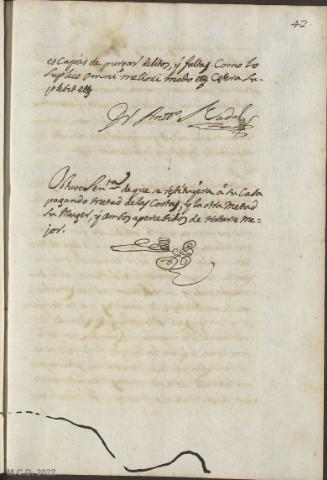 42
es Capas de purgar delitos, y faltas. Como lo
suplico omni meliori modo etc Cetera su
plebit etc
Dr Antto. Nadal
Obtuvo Senta. de que se restituyera á su Casa
pagando mitad de las Costas, y la otra metad
su Muger, y ambos apercebidos de tratarse me-
jor.
M.C.D. 2022